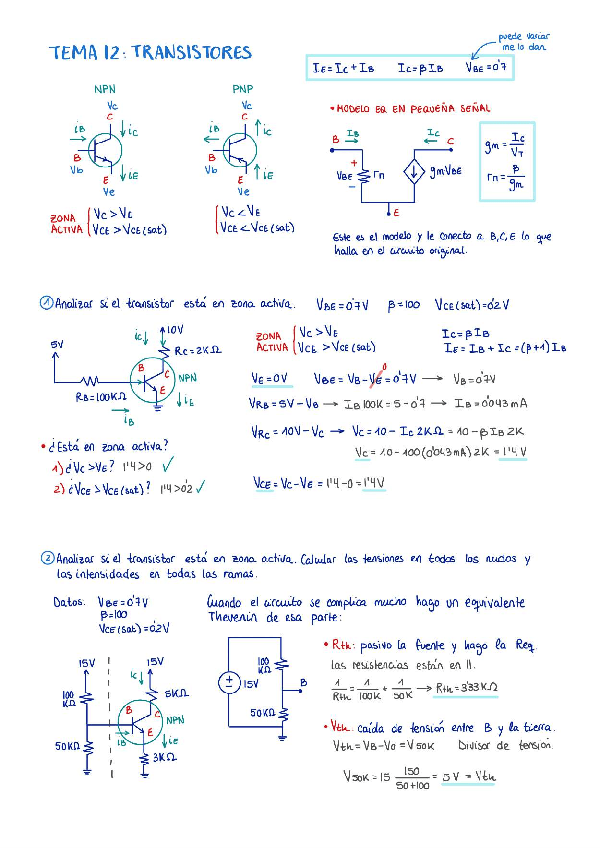 puede variar
me lo dan
TEMA 12: TRANSISTORES
IE = IC + IB IC = β IB VBE = 0'7
NPN PNP
VC VC
C C
iB iC iB iC
B B
Vb Vb
E iE E iE
Ve Ve
ZONA ACTIVA { VC > VE
VCE > VCE (sat)
{ VC < VE
VCE < VCE (sat)
• MODELO EQ EN PEQUEÑA SEÑAL
B IB IC C
+
VBE rπ gmVBE
−
E
gm = IC / VT
rπ = β / gm
Este es el modelo y le conecto a B, C, E lo que
halla en el circuito original.
① Analizar si el transistor está en zona activa. VBE = 0'7V β = 100 VCE (sat) = 0'2V
5V iC 10V
RC = 2KΩ
B C
NPN
E
RB = 100KΩ iE
iB
ZONA ACTIVA { VC > VE
VCE > VCE (sat)
IC = β IB
IE = IB + IC = (β+1) IB
VE = 0V VBE = VB − VE = 0'7V → VB = 0'7V
0
VRB = 5V − VB → IB 100K = 5 − 0'7 → IB = 0'043 mA
VRC = 10V − VC → VC = 10 − IC 2KΩ = 10 − β IB 2K
VC = 10 − 100 (0'043 mA) 2K = 1'4 V
VCE = VC − VE = 1'4 − 0 = 1'4V
• ¿Está en zona activa?
1) ¿VC > VE? 1'4 > 0 ✓
2) ¿VCE > VCE (sat)? 1'4 > 0'2 ✓
② Analizar si el transistor está en zona activa. Calcular las tensiones en todos los nudos y
las intensidades en todas las ramas.
Datos: VBE = 0'7V
β = 100
VCE (sat) = 0'2V
Cuando el circuito se complica mucho hago un equivalente
Thevenin de esa parte:
15V 15V
iC
100 KΩ 5KΩ
B C
NPN
iB E iE
50KΩ 3KΩ
100 KΩ
+ − 15V B
50KΩ
• Rth: pasivo la fuente y hago la Req.
las resistencias están en //.
1 / Rth = 1 / 100K + 1 / 50K → Rth = 3'33 KΩ
• Vth: caída de tensión entre B y la tierra.
Vth = VB − V0 = V50K Divisor de tensión.
V50K = 15 150 / 50+100 = 5 V = Vth